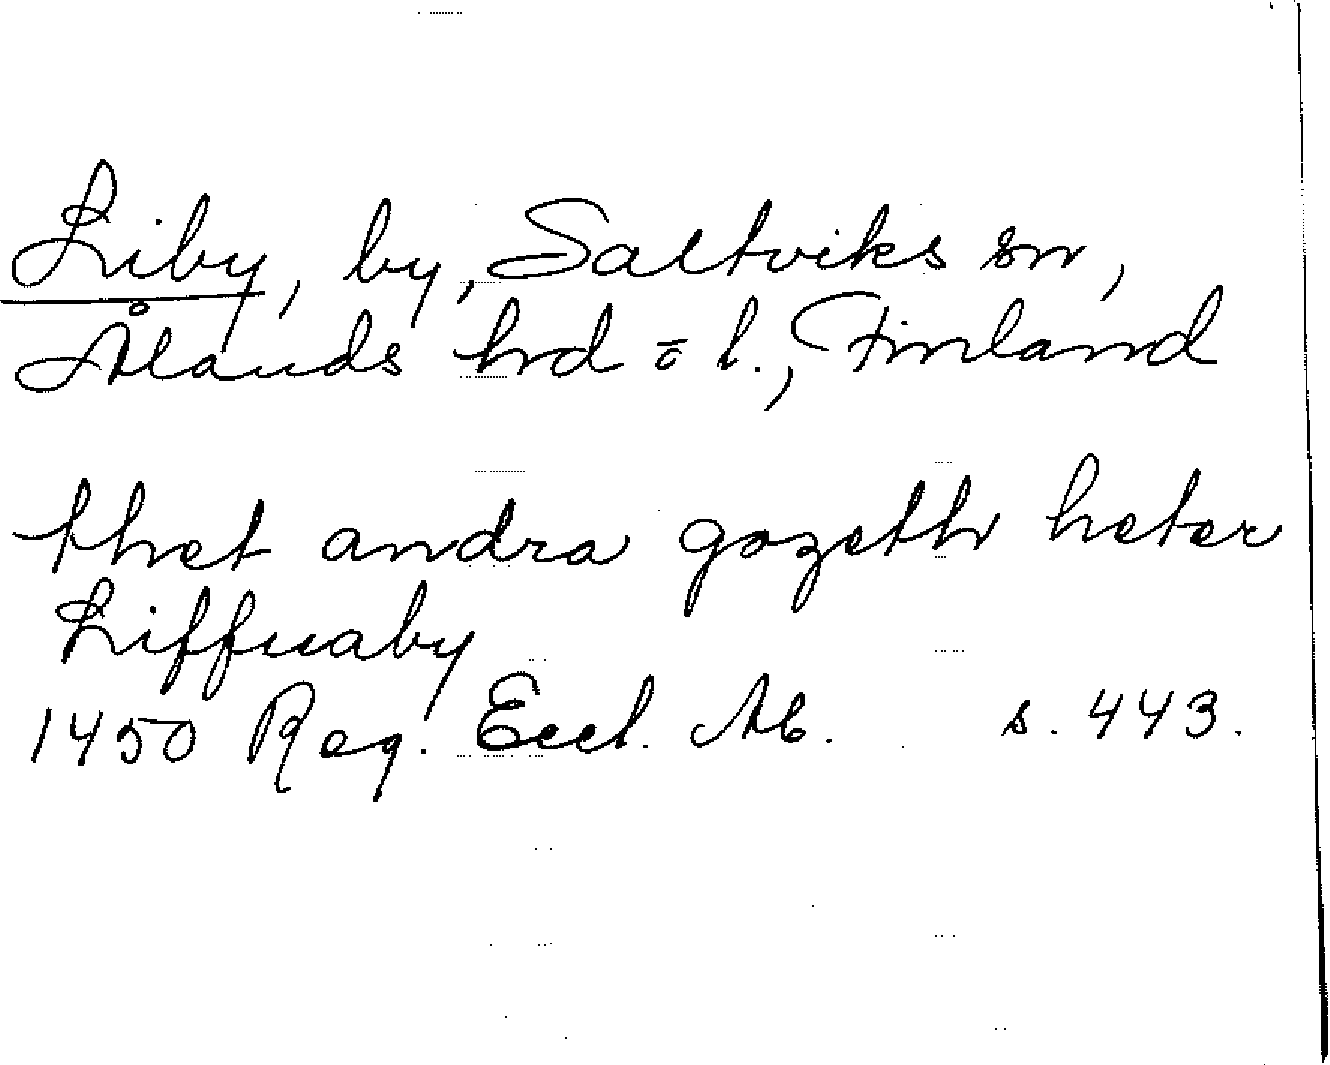 Liby, by, Saltviks sn,
Ålands hd o l., Finland
thet andra gozeth heter
Liffuaby
1450 Reg. Eccl. Ab. s. 443.